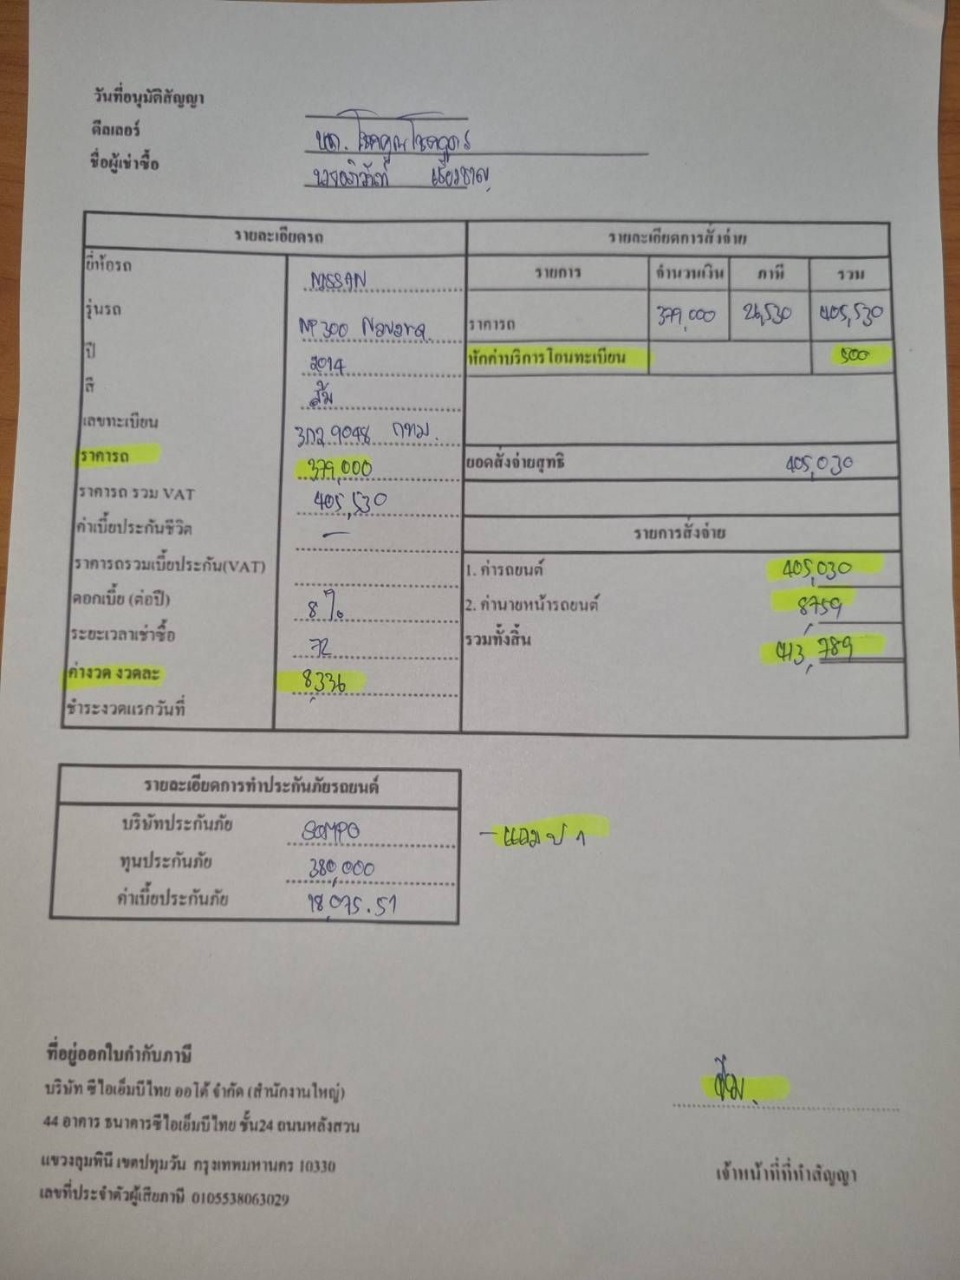 วันที่อนุมัติสัญญา
ดีลเลอร์ หจก. โชคคูณโชคถาวร
ชื่อผู้เช่าซื้อ
รายละเอียดรถ
ยี่ห้อรถ NISSAN
รุ่นรถ NP 300 Navara
ปี 2014
สี ส้ม
เลขทะเบียน 3ฒ 9048 กทม.
ราคารถ 379,000
ราคารถ รวม VAT 405,530
ค่าเบี้ยประกันชีวิต –
ราคารถรวมเบี้ยประกัน(VAT)
ดอกเบี้ย (ต่อปี) 8%
ระยะเวลาเช่าซื้อ 72
ค่างวด งวดละ 8,336
ชำระงวดแรกวันที่
รายละเอียดการสั่งจ่าย
รายการ จำนวนเงิน ภาษี รวม
ราคารถ 379,000 26,530 405,530
หักค่าบริการโอนทะเบียน 500
ยอดสั่งจ่ายสุทธิ 405,030
รายการสั่งจ่าย
1. ค่ารถยนต์ 405,030
2. ค่านายหน้ารถยนต์ 8,759
รวมทั้งสิ้น 413,789
รายละเอียดการทำประกันภัยรถยนต์
บริษัทประกันภัย SOMPO
ทุนประกันภัย 380,000
ค่าเบี้ยประกันภัย 18,075.51
- แถม ป 1
ที่อยู่ออกใบกำกับภาษี
บริษัท ซีไอเอ็มบีไทย ออโต้ จำกัด (สำนักงานใหญ่)
44 อาคาร ธนาคารซีไอเอ็มบีไทย ชั้น24 ถนนหลังสวน
แขวงลุมพินี เขตปทุมวัน กรุงเทพมหานคร 10330
เลขที่ประจำตัวผู้เสียภาษี 0105538063029
เจ้าหน้าที่ที่ทำสัญญา